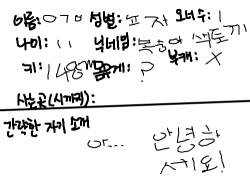 이름: 이기 성별: 여자 오너수: 1
나이: 11 닉네임: 복숭아 색토끼
키: 148cm 몸무게: ? 부캐: X
사는곳(시까지):
간략한 자기 소개
or... 안녕하
세요!